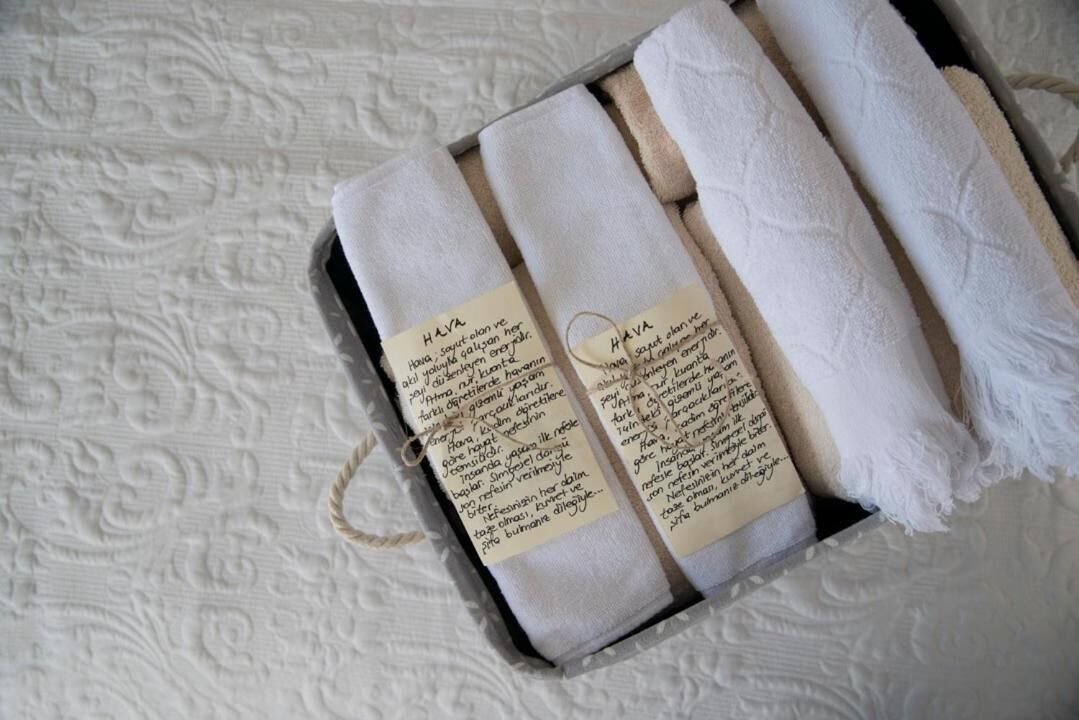 HAVA
Hava; soyut olan ve
akıl yoluyla çalışan her
şeyi düzenleyen enerjidir.
Atma, nur, kuanta
farklı öğretilerde havanın
gizemli yaşam
enerji parçacıklarıdır.
Hava, kadim öğretilere
göre hayat nefesinin
temsilidir.
İnsanda yaşam ilk nefesle
başlar. Simgesel döngü
son nefesin verilmesiyle
biter.
Nefesinizin her daim
taze olması, kuvvet ve
şifa bulmanız dileğiyle...
HAVA
Hava; soyut olan ve
akıl yoluyla çalışan her
şeyi düzenleyen enerjidir.
Atma, nur, kuanta
farklı öğretilerde havanın
içindeki gizemli yaşam
enerji parçacıklarıdır.
Hava, kadim öğretilere
göre hayat nefesinin temsilidir.
İnsanda yaşam ilk
nefesle başlar. Simgesel döngü
son nefesin verilmesiyle biter.
Nefesinizin her daim
taze olması, kuvvet ve
şifa bulmanız dileğiyle...